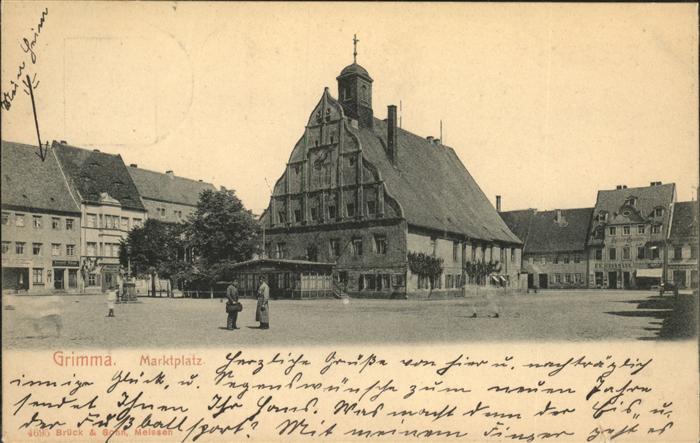 Mein Heim
Grimma. Marktplatz.
Herzliche Grüße von hier u. nachträglich
innige Glück, u. Segenswünsche zum neuen Jahre
sendet Ihnen Ihr Hans. Was macht denn der Eis- u.
der Fußballsport? Mit meinem Finger geht es
4695 Brück & Sohn, Meissen